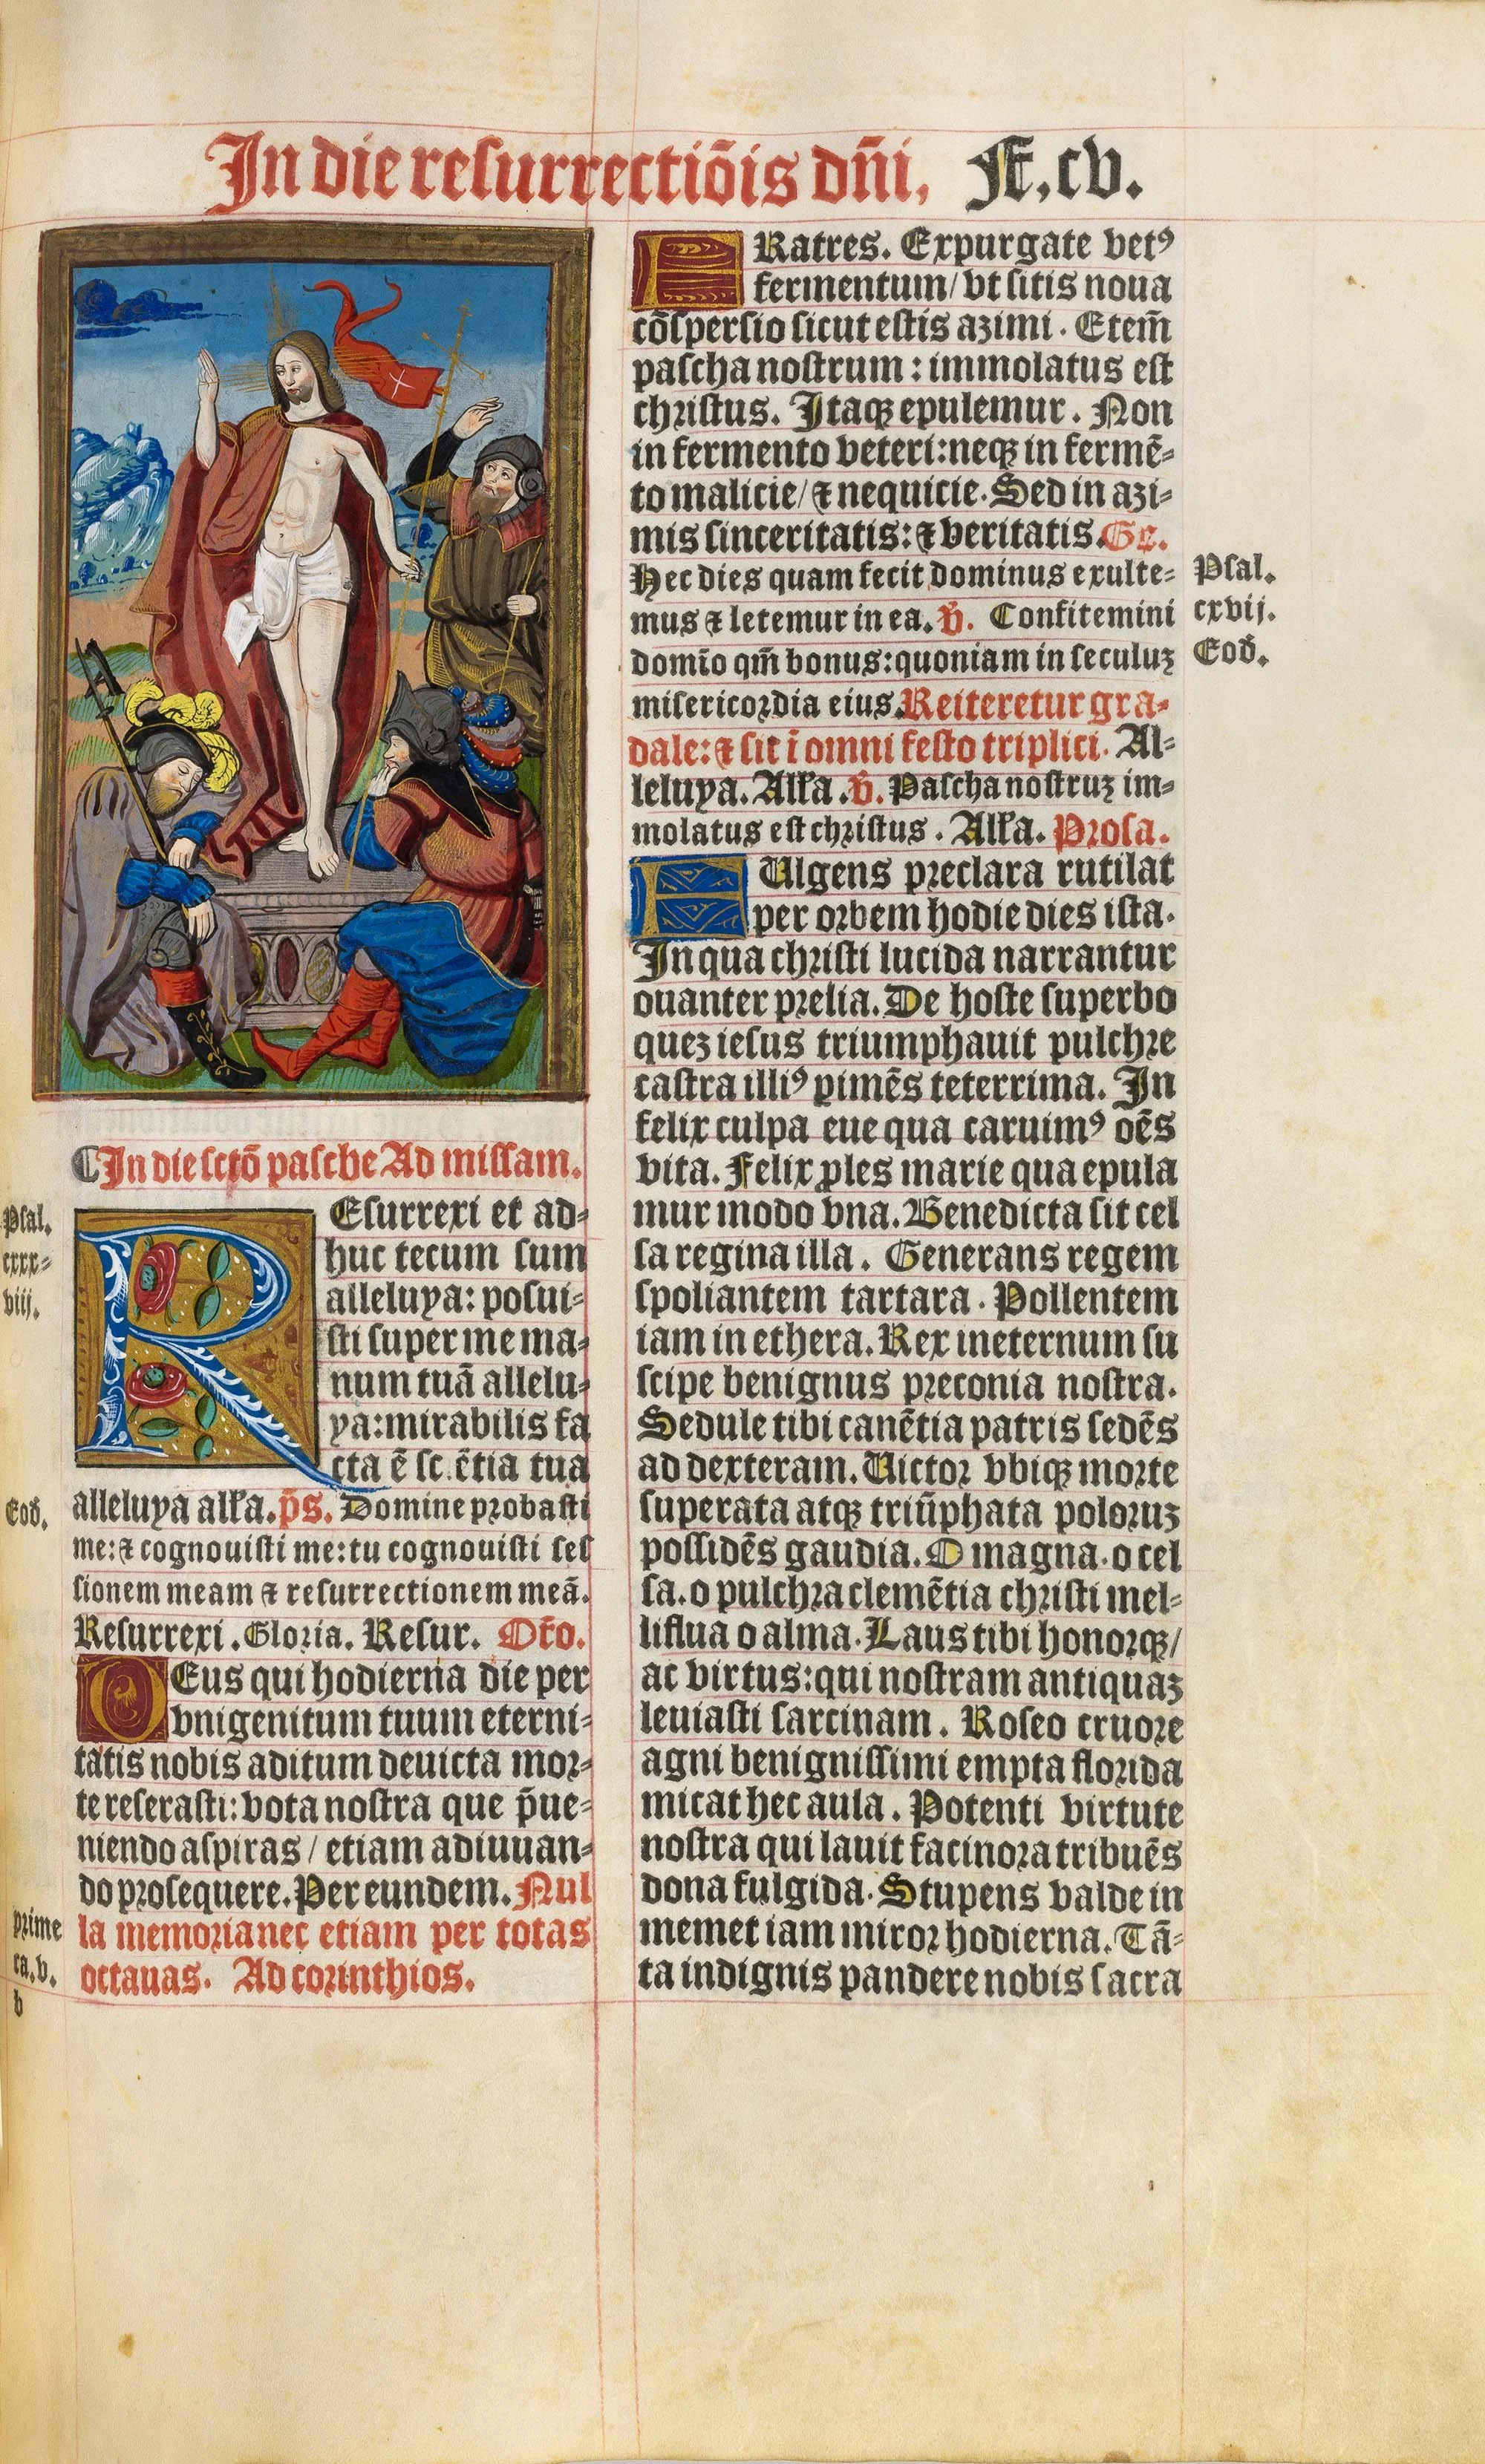 In die resurrectiõis dñi, Ff.cv.
¶In die sctõ pasche Ad missam.
Psal.
cxxx=
viij.
REsurrexi et ad=
huc tecum sum
alleluya: posui=
sti super me ma=
num tuã allelu=
ya: mirabilis fa
cta ẽ sc.ẽtia tua
Eod̃.
alleluya alľa. p̃s. Domine probasti
me: ⁊ cognouisti me: tu cognouisti ses
sionem meam ⁊ resurrectionem meã.
Resurrexi. Gloria. Resur. Or̃o.
DEus qui hodierna die per
vnigenitum tuum eterni=
tatis nobis aditum deuicta mor=
te reserasti: vota nostra que p̃ue=
niendo aspiras / etiam adiuuan=
do prosequere. Per eundem. Nul
la memoria nec etiam per totas
octauas. Ad corinthios.
prime
ca.v.
b
FRatres. Expurgate vetꝰ
fermentum / vt sitis noua
cõspersio sicut estis azimi. Etem̃
pascha nostrum: immolatus est
christus. Itaqꝫ epulemur. Non
in fermento veteri: neqꝫ in fermẽ=
to malicie / ⁊ nequicie. Sed in azi=
mis sinceritatis: ⁊ veritatis. Gr̃.
Hec dies quam fecit dominus exulte=
mus ⁊ letemur in ea. ℣. Confitemini
domĩo qm̃ bonus: quoniam in seculuꝫ
misericordia eius. Reiteretur gra=
dale: ⁊ sit ĩ omni festo triplici. Al=
leluya. Alľa. ℣. Pascha nostruꝫ im=
molatus est christus. Alľa. Prosa.
Psal.
cxvij.
Eod̃.
FUlgens preclara rutilat
per orbem hodie dies ista.
In qua christi lucida narrantur
ouanter prelia. De hoste superbo
queꝫ iesus triumphauit pulchre
castra illiꝰ ꝑimẽs teterrima. In
felix culpa eue qua caruimꝰ oẽs
vita. Felix ꝓles marie qua epula
mur modo vna. Benedicta sit cel
sa regina illa. Generans regem
spoliantem tartara. Pollentem
iam in ethera. Rex ineternum su
scipe benignus preconia nostra.
Sedule tibi canẽtia patris sedẽs
ad dexteram. Uictor vbiqꝫ morte
superata atqꝫ triũphata poloruꝫ
possidẽs gaudia. O magna. o cel
sa. o pulchra clemẽtia christi mel=
liflua o alma. Laus tibi honorqꝫ /
ac virtus: qui nostram antiquaꝫ
leuiasti sarcinam. Roseo cruore
agni benignissimi empta florida
micat hec aula. Potenti virtute
nostra qui lauit facinora tribuẽs
dona fulgida. Stupens valde in
memet iam miror hodierna. Tã=
ta indignis pandere nobis sacra